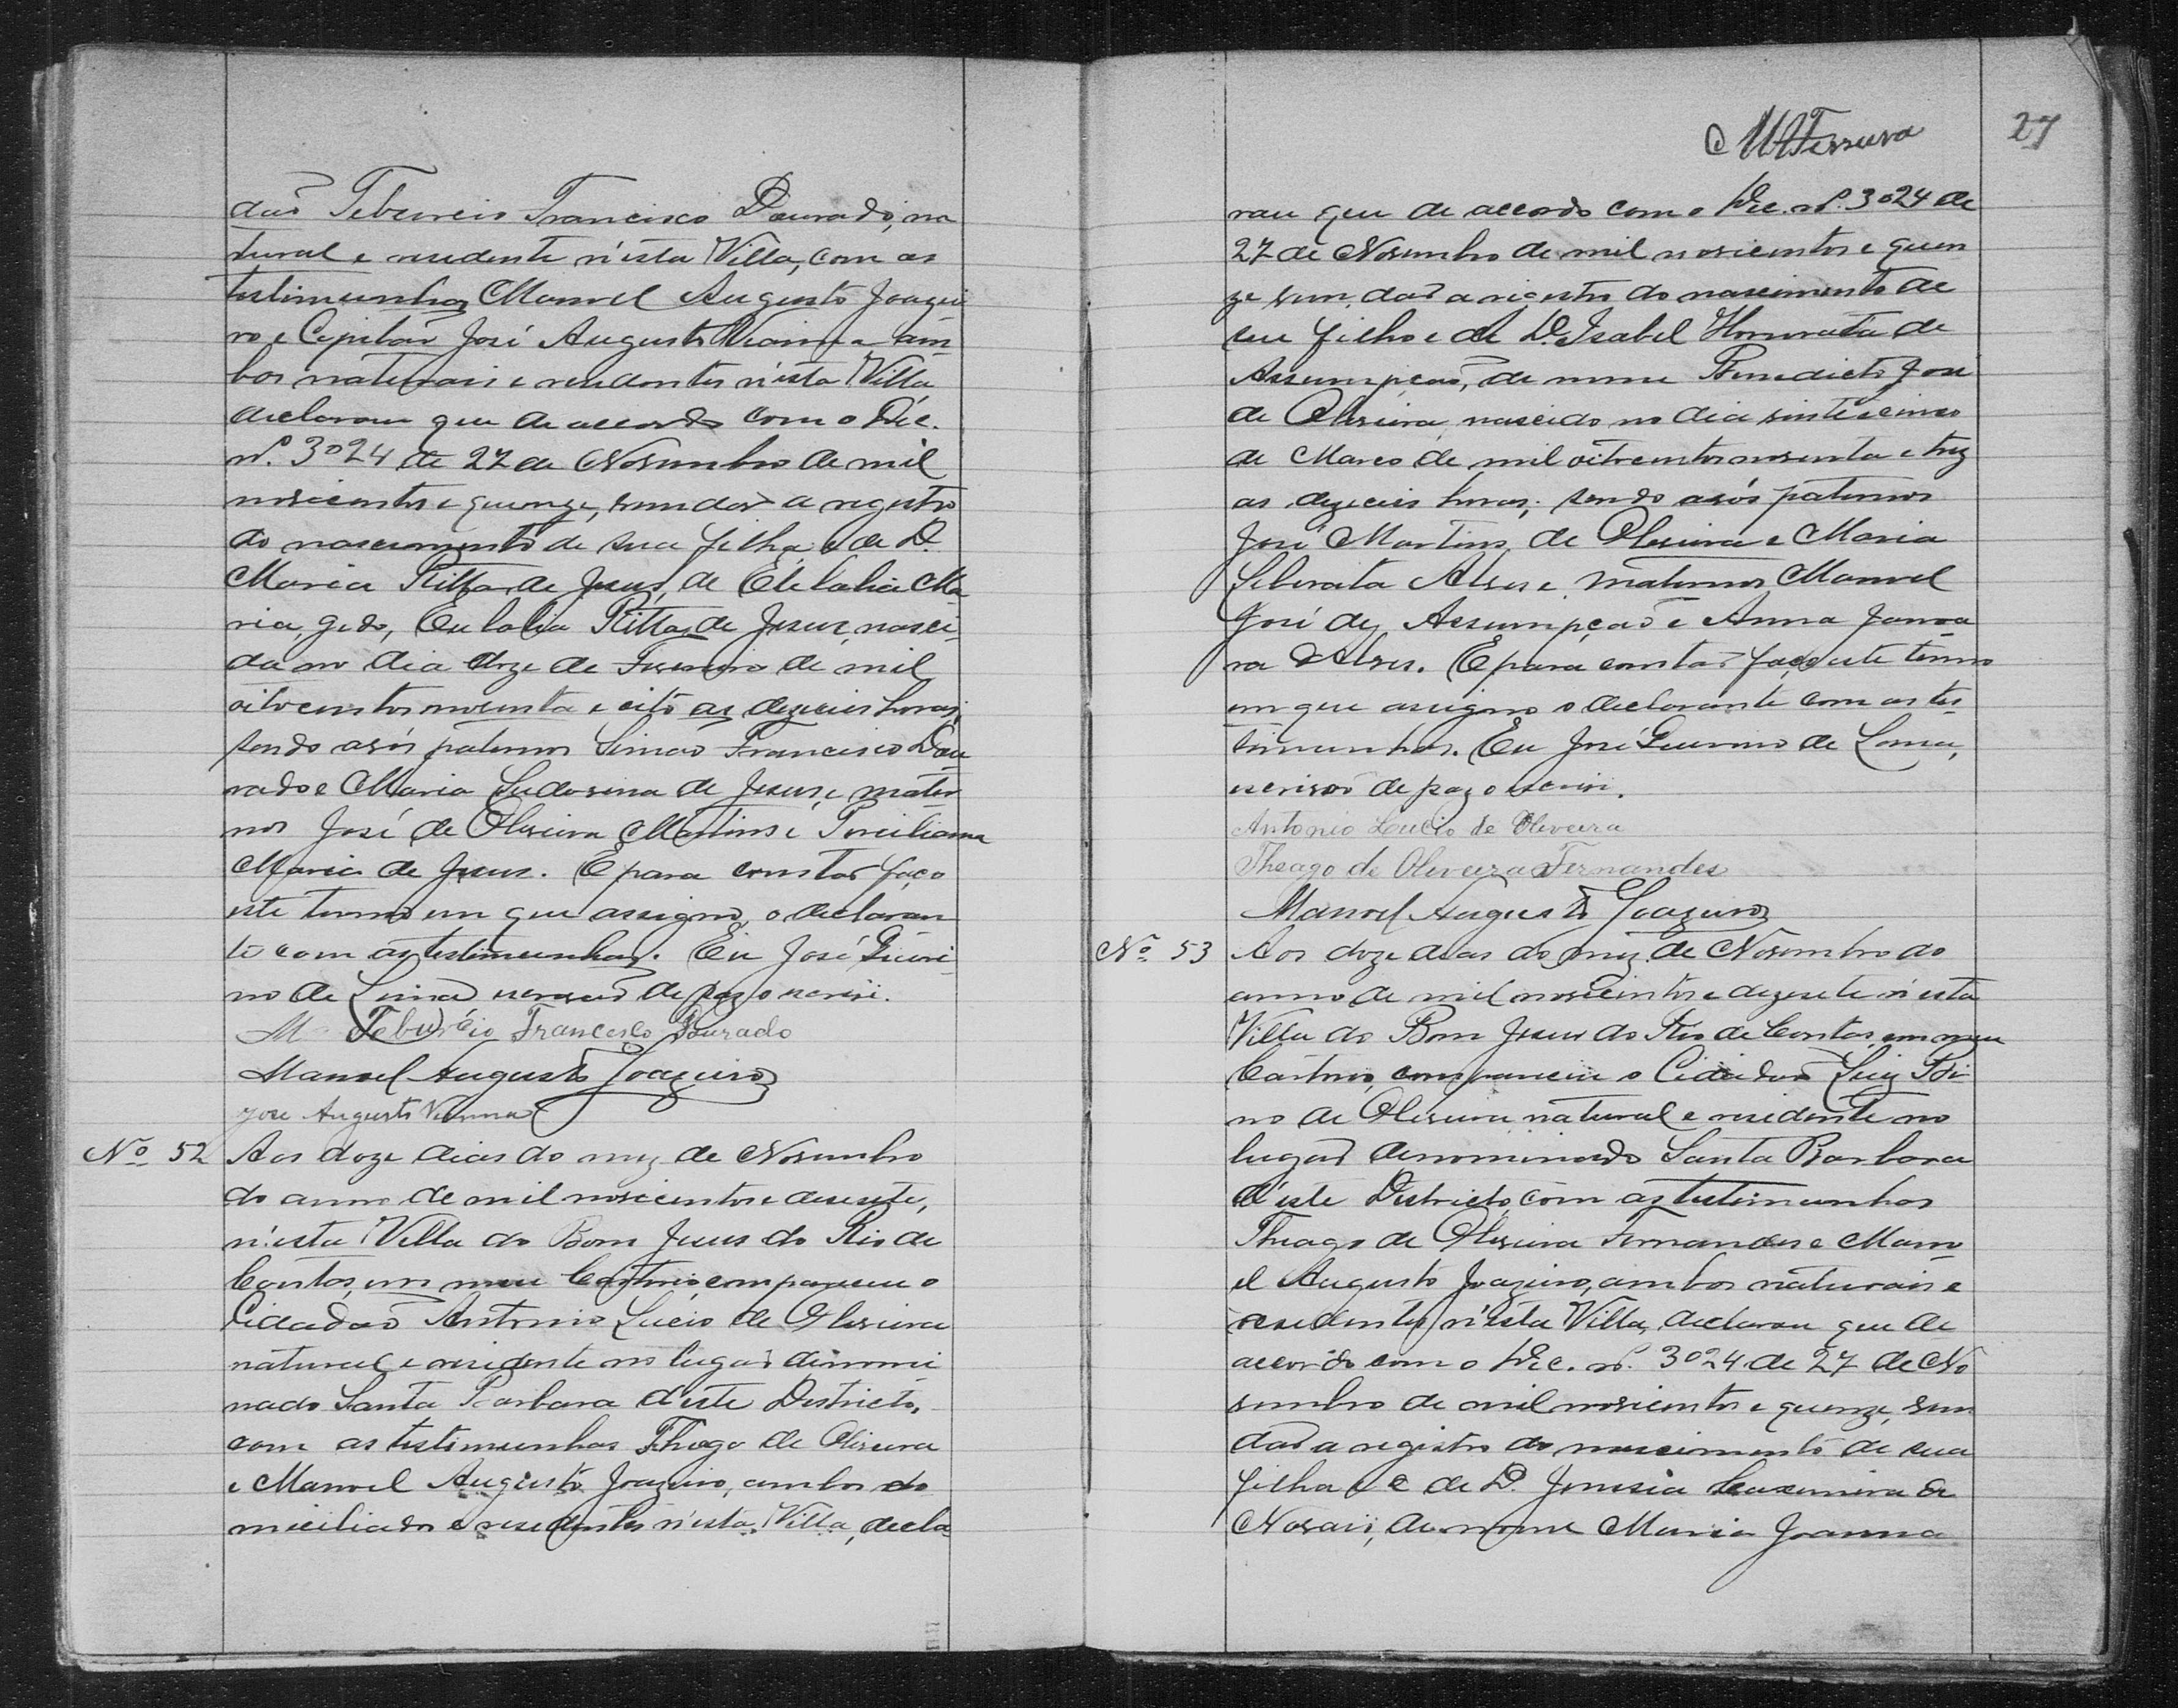 dão Teburcio Francisco Dourado, na
tural e residente n'esta Villa, com as
testimunhas Manoel Augusto Joazei
ro e Capitão José Augusto Vianna am
bos naturais e residentes n'esta Villa
declarou que de accordo com o Dec.
nº. 3024 de 27 de Novembro de mil
novicentos e quinze, vem dar a registro
do nascimento de sua filha e de D.
Maria Ritta de Jesus, de Eulalia Ma
ria, digo, Eulalia Ritta de Jesus, nasci
da no dia doze de Fevereiro de mil
oitocentos noventa e oito as dezeseis horas;
sendo avós paternos Simão Francisco Dou
rado e Maria Ludovina de Jesus, e mater
nos José de Oliveira Martins e Porciliana
Maria de Jesus. E para constar faço
este termo em que assigno, o declaran
te com as testimunhas. Eu José Guiri
no de Lima escrivão de paz o escrivi.
M Teburcio Francisco Dourado
Manoel Augusto Joazeiro
Jose Augusto Vianna
Nº 52 Aos doze dias do mez de Novembro
do anno de mil novicentos e desesete,
n'esta Villa do Bom Jesus do Rio de
Contas, em meu Cartorio, compareceu o
Cidadão Antonio Lucio de Oliveira
natural e residente no lugar dinomi
nado Santa Barbara d'este Districto,
com as testimunhas Thiago de Oliveira
e Manoel Augusto Joazeiro, ambos do
miciliados e residentes n'esta Villa, decla
MAFerreira 27
rou que de accordo com o Dec. nº. 3024 de
27 de Novembro de mil novicentos e quin
ze vem dar a registro do nascimento de
seu filho e de D. Isabel Honorata de
Assumpção, de nome Benedicto José
de Oliveira, nascido no dia vinte e cinco
de Março de mil oitocentos noventa e trez
as dezeseis horas; sendo avós paternos
José Martins de Oliveira e Maria
Liberata Alves e maternos Manoel
José de Assumpção e Anna Janoa
ra Alves. E para constar faço este termo
em que assigno o declarante com as tes
timunhas. Eu José Guirino de Lima,
escrivão de paz o escrivi.
Antonio Lucio de Oliveira
Theago de Oliveira Fernandes
Manoel Augusto Joazeiro
Nº 53 Aos doze dias do mez de Novembro do
anno de mil novicentos e dezesete n'esta
Villa do Bom Jesus do Rio de Contas, em meu
Cartorio, compareceu o Cidadão Luiz
no de Oliveira natural e residente no
lugar denominado Santa Barbara
d'este Districto, com as testimunhas
Thiago de Oliveira Fernandes e Mano
el Augusto Joazeiro, ambos naturais e
residentes n'esta Villa, declarou que de
accordo com o Dec. nº. 3024 de 27 de No
vembro de mil novicentos e quinze, vem
dar a registro do nascimento de sua
filha e de D. Casemira de
Novais, de nome Maria Joanna